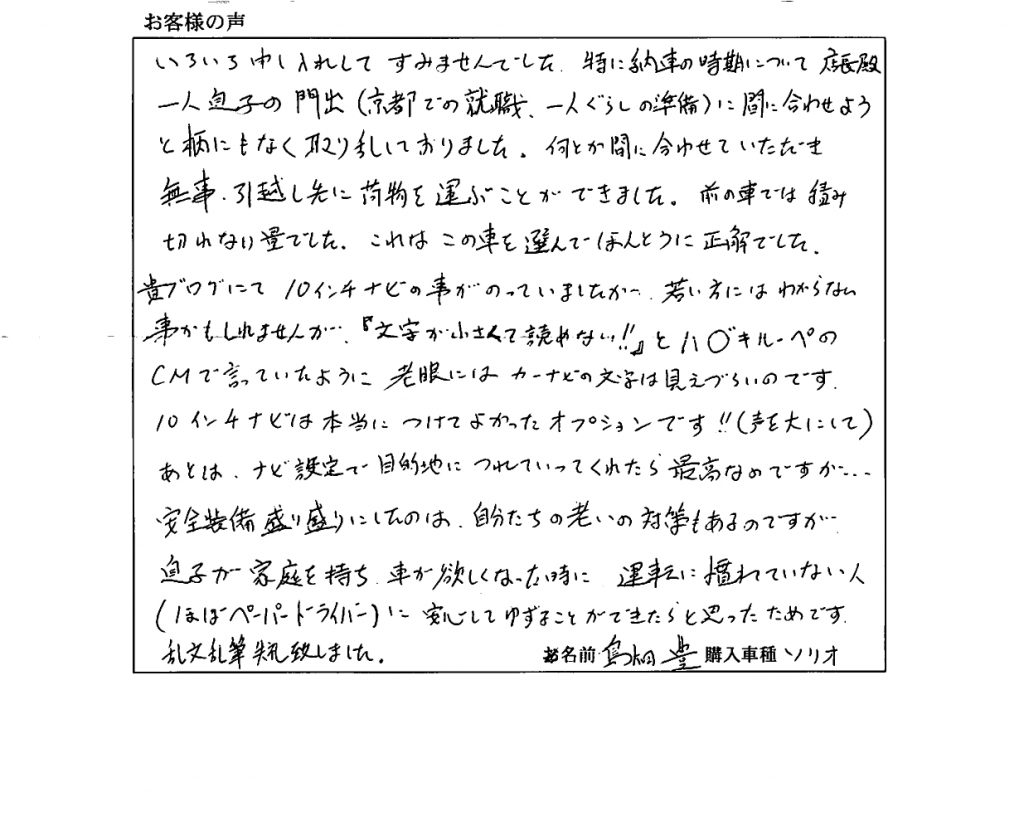 お客様の声
いろいろ申し入れして すみませんでした。特に納車の時期について 店長殿
一人息子の門出(京都での就職、一人ぐらしの準備)に間に合わせよう
と柄にもなく取り乱しておりました。何とか間に合わせていただき
無事、引越し先に荷物を運ぶことができました。前の車では積み
切れない量でした。これはこの車を選んでほんとうに正解でした。
貴ブログにて 10インチナビの事がのっていましたが… 若い方にはわからない
事かもしれませんが…、『文字が小さくて読めない!!』とハ○キルーペの
CMで言っていたように 老眼にはカーナビの文字は見えづらいのです。
10インチナビは本当につけてよかったオプションです!!(声を大にして)
あとは、ナビ設定で目的地につれていってくれたら最高なのですが…
安全装備盛り盛りにしたのは、自分たちの老いの対策もあるのですが…
息子が家庭を持ち、車が欲しくなった時に 運転に慣れていない人
(ほぼペーパードライバー)に安心してゆずることができたらと思ったためです。
乱文乱筆失礼致しました。 お名前 島畑 豊 購入車種 ソリオ